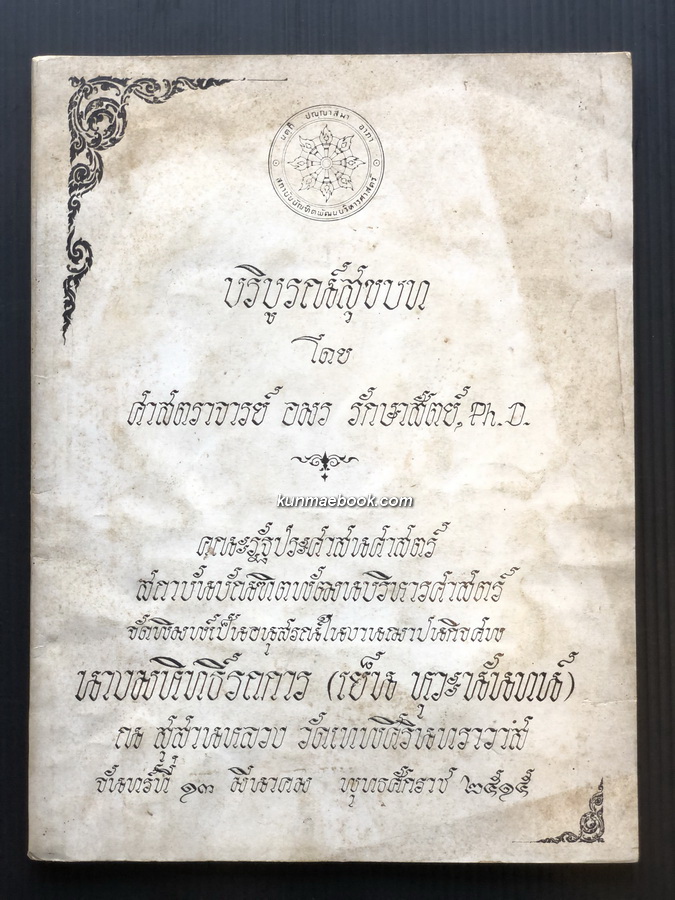 นตฺถิ ปญฺญาสมา อาภา
สถาบันบัณฑิตพัฒนบริหารศาสตร์
บริบูรณ์สุขบท
โดย
ศาสตราจารย์ อมร รักษาสัตย์, Ph.D.
kunmaebook.com
คณะรัฐประศาสนศาสตร์
สถาบันบัณฑิตพัฒนบริหารศาสตร์
จัดพิมพ์เป็นอนุสรณ์ในงานฌาปนกิจศพ
นายมหิทธิ์รถการ (เย็น หุวะนันทน์)
ณ สุสานหลวง วัดเทพศิรินทราวาส
จันทร์ที่ ๑๓ มีนาคม พุทธศักราช ๒๕๑๕